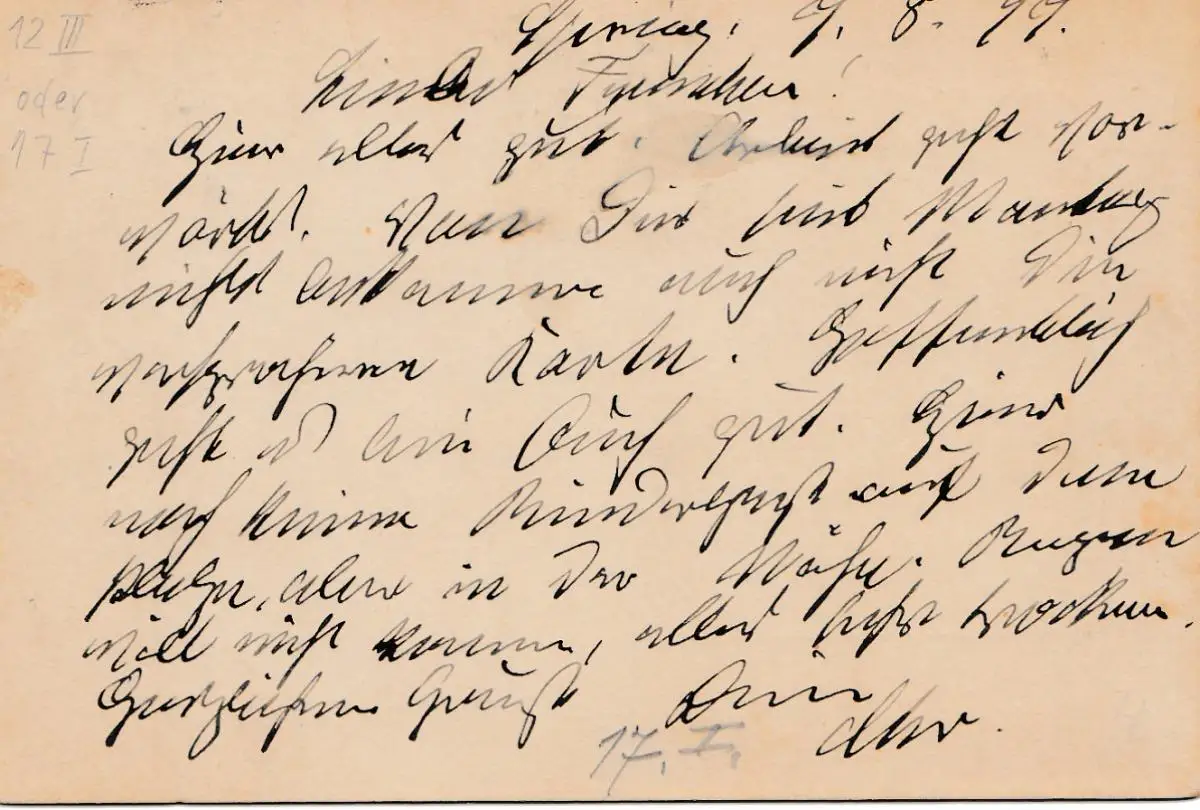 12 III
oder
17 I
9. 8. 99.
Liebes Frauchen!
Hier alles gut. Arbeit geht vor-
wärts. Von Dir seit Montag
nichts bekommen auch nicht die
versprochene Karte. Hoffentlich
geht es bei Euch gut. Hier
noch keine Rinderpest auf dem
Platze, aber in der Nähe. Regen
will nicht kommen, alles sehr trocken.
Herzlichen Gruß Dein
17. I.